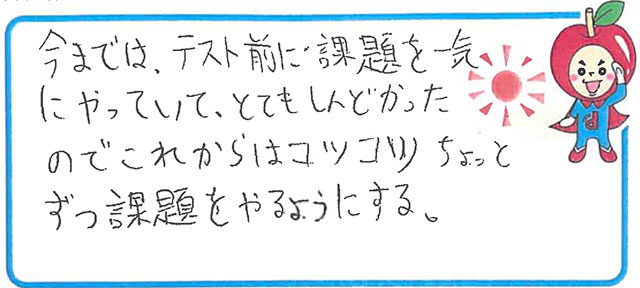 今までは、テスト前に課題を一気
にやっていて、とてもしんどかった
のでこれからはコツコツちょっと
ずつ課題をやるようにする。
d